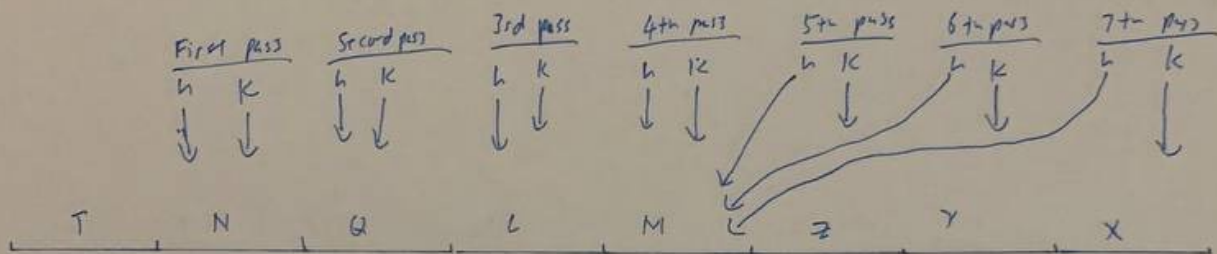 First pass Second pass 3rd pass 4th pass 5th pass 6th pass 7th pass
h K h K h K h K h K h K h K
T N Q L M Z Y X